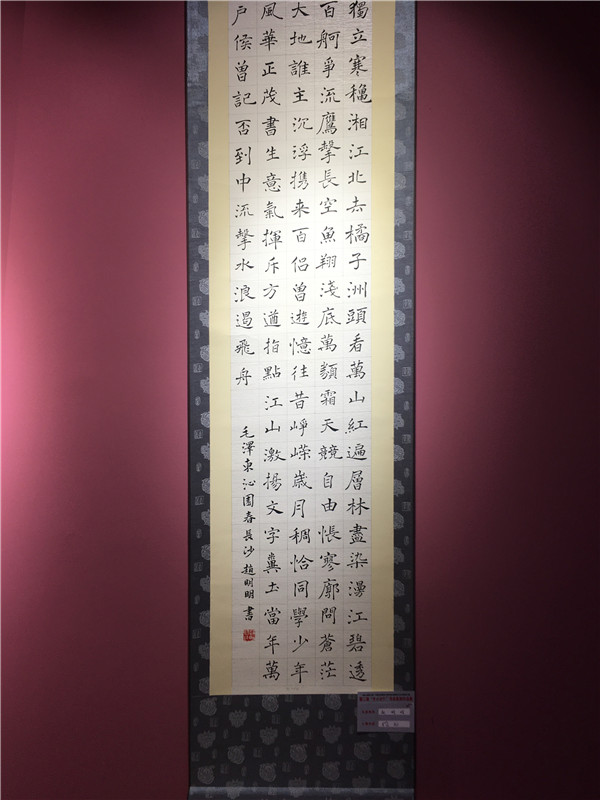 獨立寒穐湘江北去橘子洲頭看萬山紅遍層林盡染漫江碧透
百舸爭流鷹擊長空魚翔淺底萬類霜天競自由悵寥廓問蒼茫
大地誰主沉浮携来百侣曾遊憶往昔崢嶸歲月稠恰同學少年
風華正茂書生意氣揮斥方遒指點江山激揚文字糞土當年萬
户侯曾記否到中流擊水浪遏飛舟
毛澤東沁園春長沙趙明明書